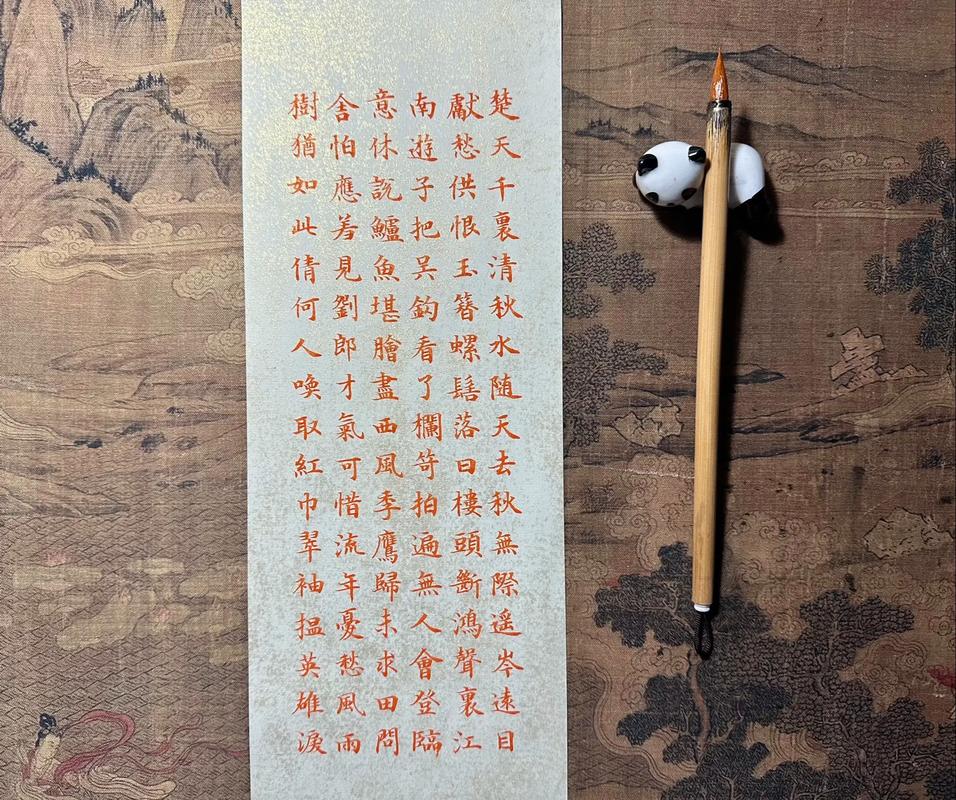 楚天千裏清秋水随天去秋無際遥岑遠目
獻愁供恨玉簪螺髻落日樓頭斷鴻聲裏江
南遊子把吴鈎看了欄笴拍遍無人會登臨
意休説鱸魚堪膾盡西風季鷹歸未求田問
舍怕應羞見劉郎才氣可惜流年憂愁風雨
樹猶如此倩何人喚取紅巾翠袖揾英雄淚